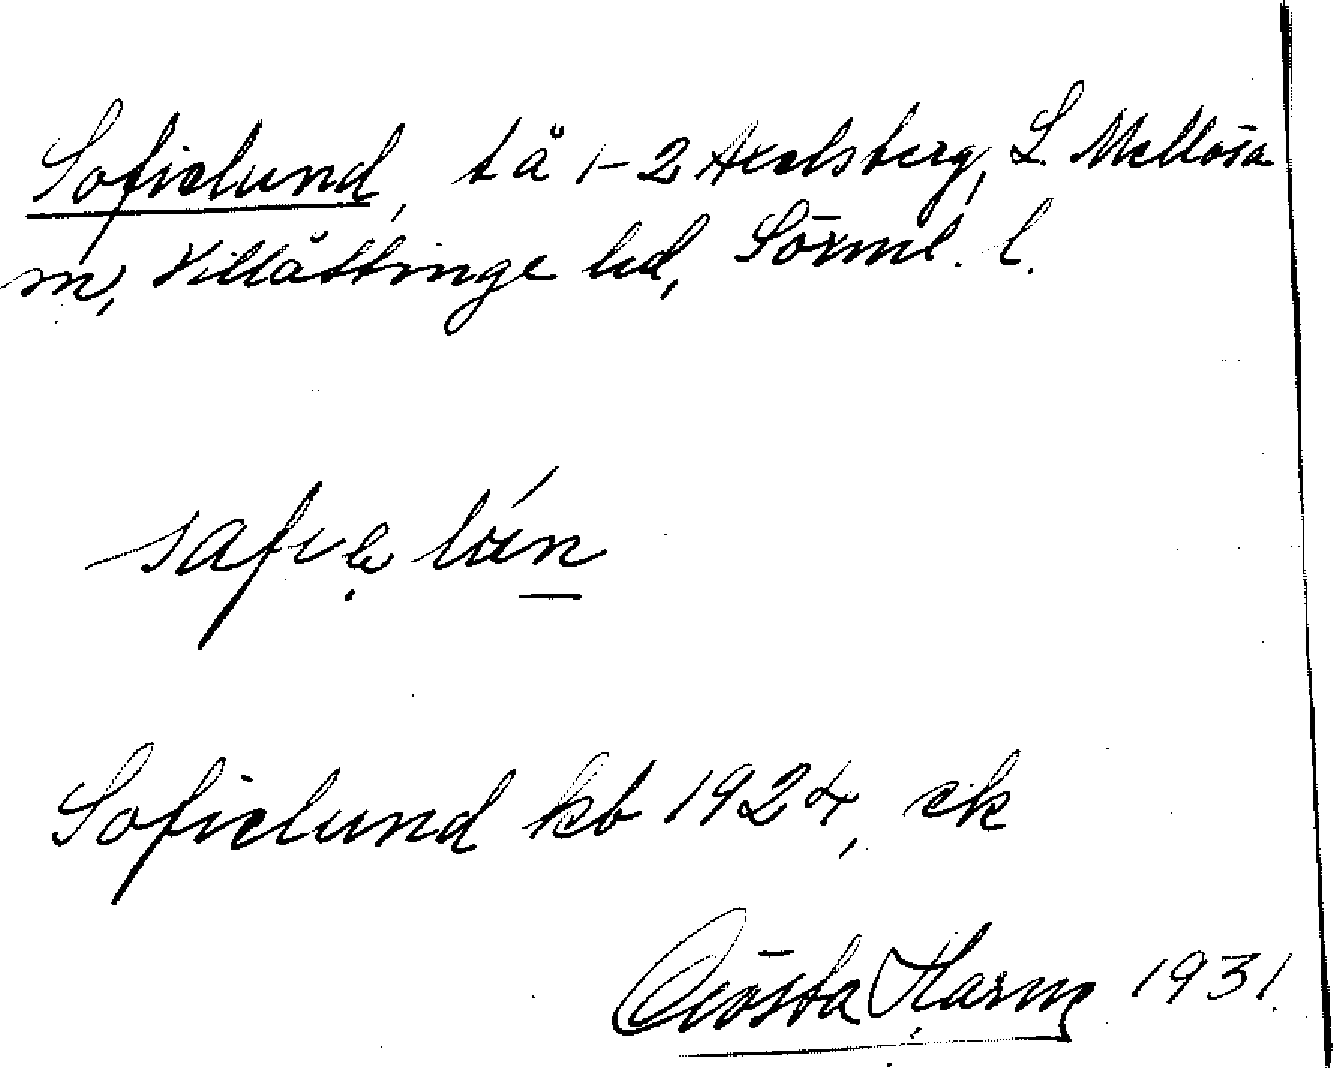 Sofielund, tå 1-2 Axelsberg, L. Mellösa
sn, Villåttinge hd, Sörml. l.
Sofielund kb 1924, ek
Gösta Harng 1931.